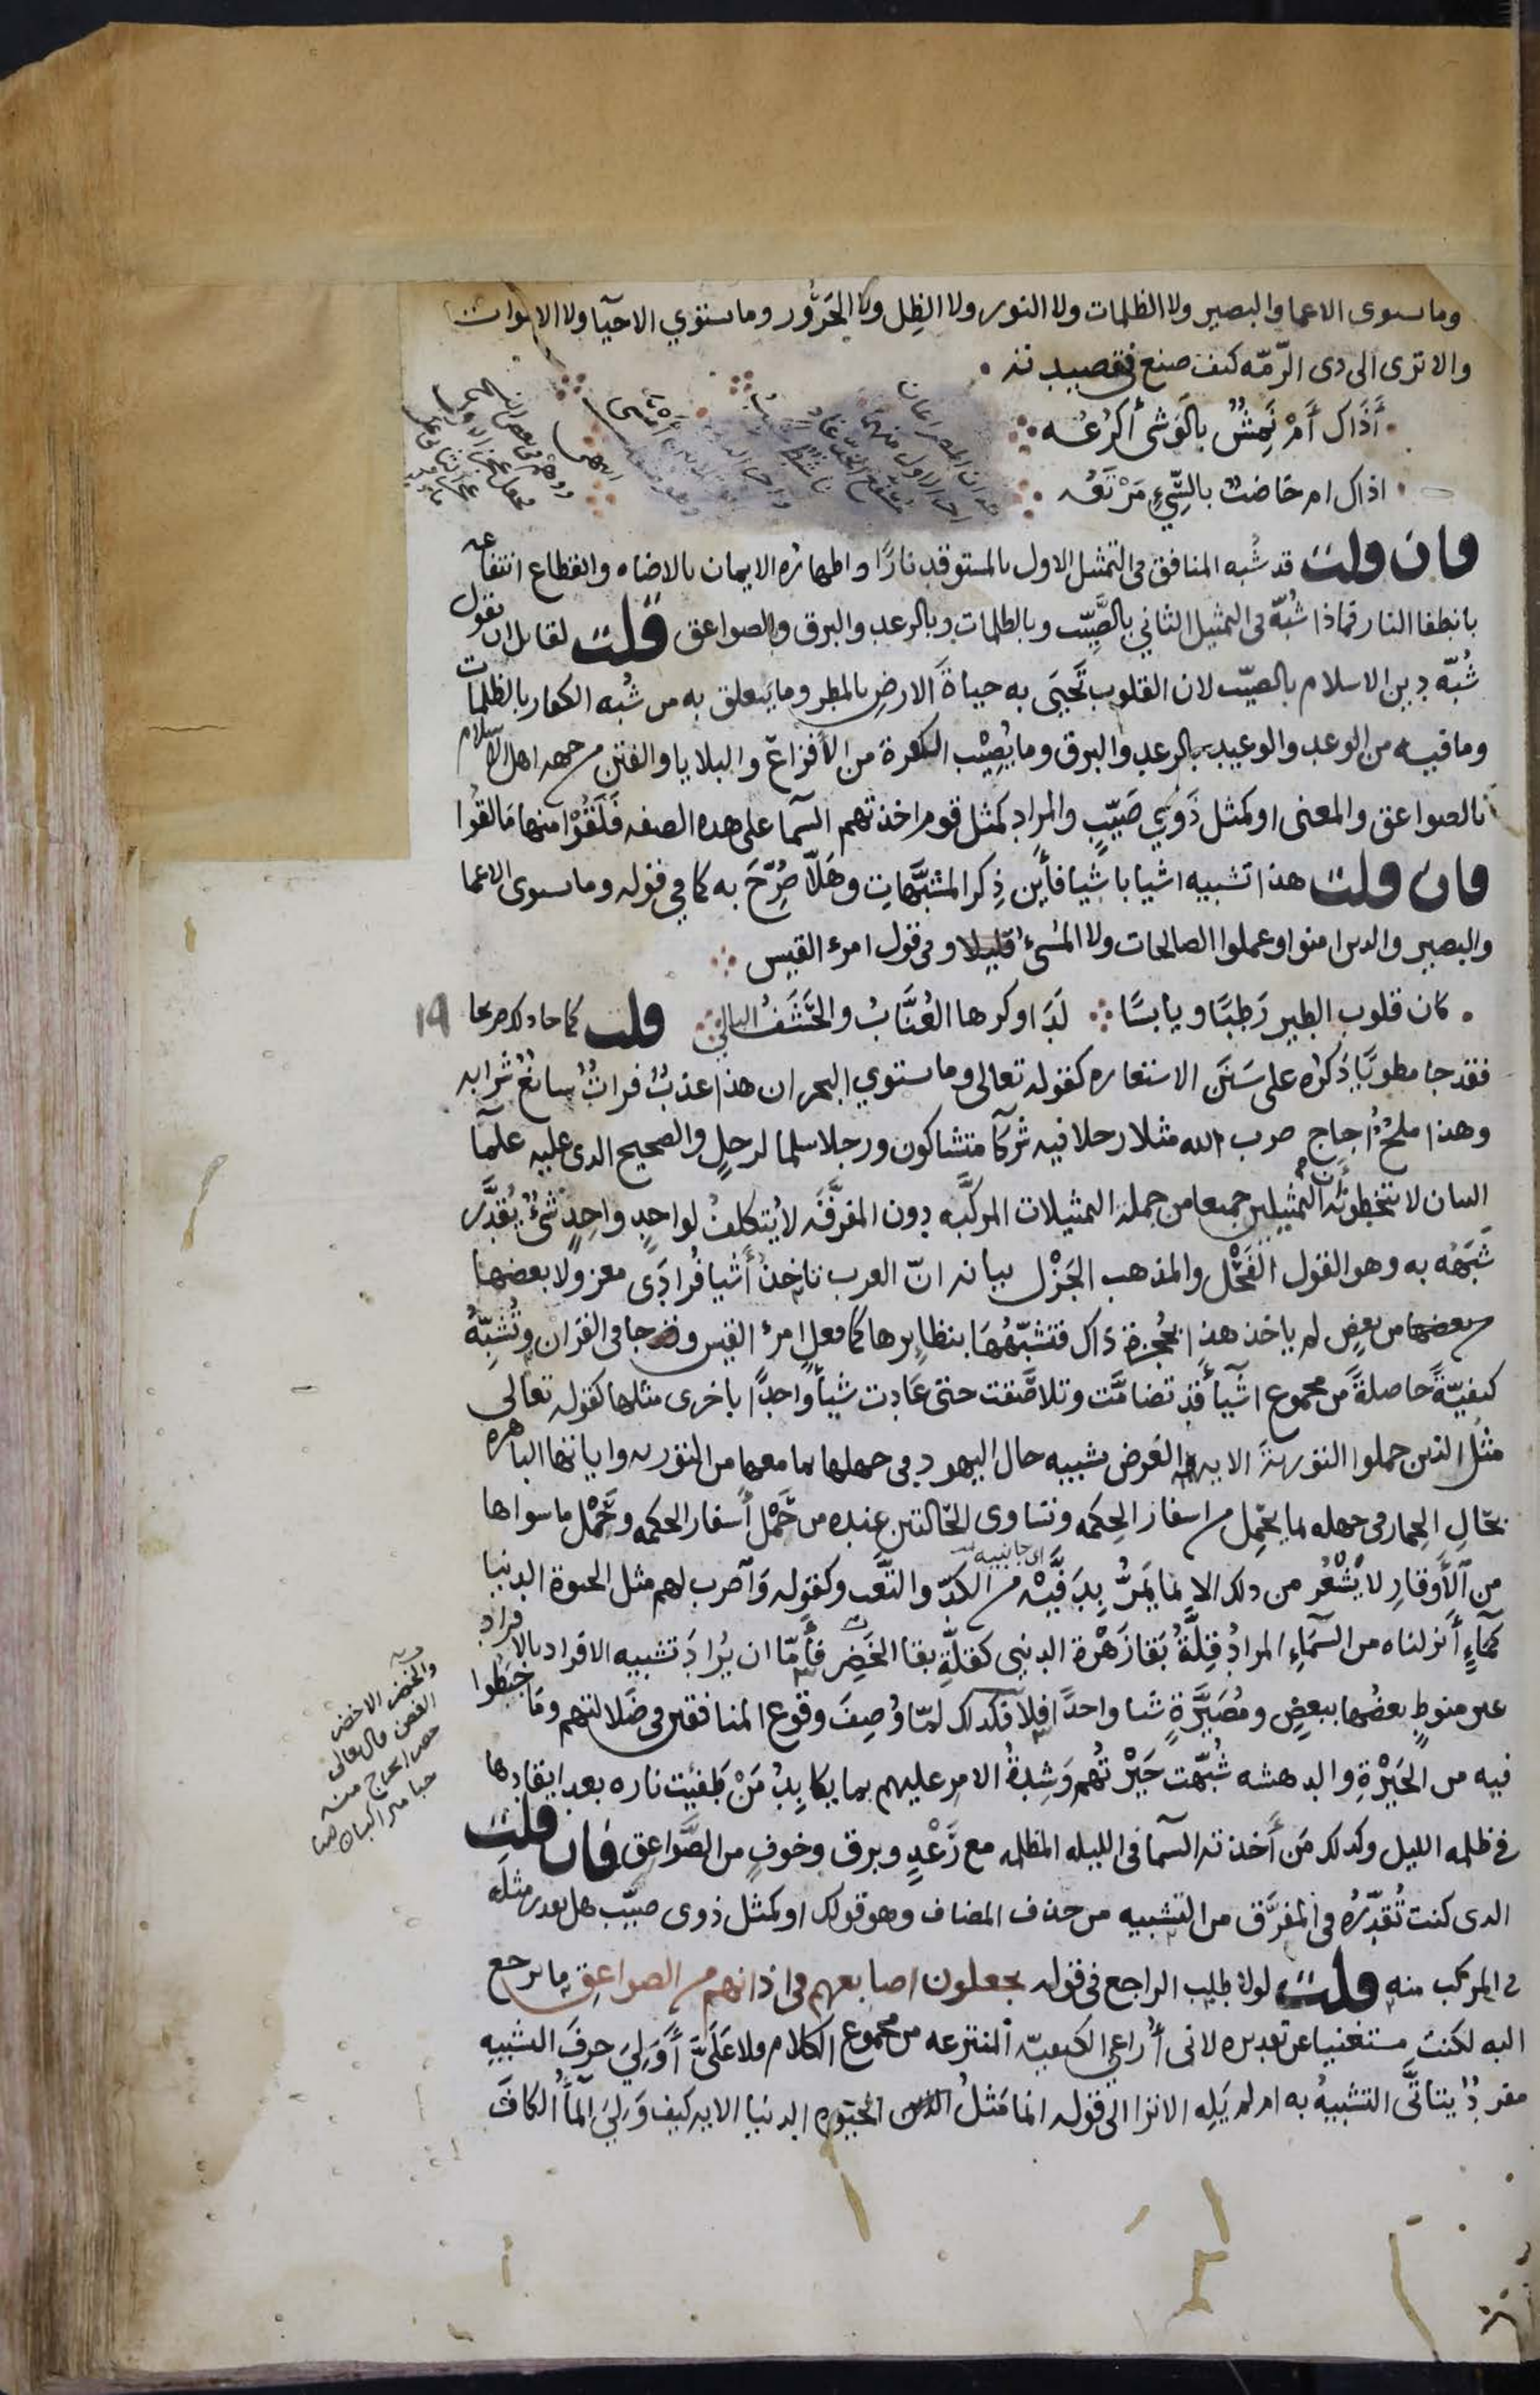 وما يستوى الاعما والبصير ولا الظلمات ولا النور ولا الظِل ولا الحَرُور وما يستوي الاحيآ ولا الاموات
والا ترى الى ذى الرّمّه كيف صنع فى قصيدته
أَذَاك أَمْ نَمِشٌ بالوَشى أَكرُعُه
اذاك ام خَاضبٌ بالسِّيّءِ مَرْتَعُه
فان قلت قد شُبه المنافق فى التمثيل الاول بالمستوقد نارًا واظهاره الايمان بالاضاه وانقطاع انتفاعه
بانطفا النار فماذا شُبّه فى التمثيل الثاني بالصَّيِّب وبالظلمات وبالرعد والبرق وبالصواعق قلت لقايل ان يقول
شُبّه دين الاسلام بالصيّب لان القلوب تَحْيَى به حياةَ الارضِ بالمطر وما يتعلق به من شُبه الكفار بالظلمات
وما فيه من الوعد والوعيد بالرعد والبرق وما يُصِيْب الكفرة من الأفزاع والبلايا والفتن من جهه اهل الاسلام
بالصواعق والمعنى او كمثل ذَوِي صَيّبٍ والمراد كمثل قوم اخذتهم السما على هذه الصفه فَلَقُوْا منها مَا لقُوا
فان قلت هذا تشبيه اشيا باشيا فأين ذِكر المشبَّهاتِ وهَلّا صُرِّحَ به كما في قوله وما يستوى الاعما
والبصير والذين امنوا وعملوا الصالحات ولا المسىءُ قليلا وفى قول امرء القيس
كان قلوب الطير رَطبًا ويابسًا لَدَا وكرها العُنَّابُ والحَشَفُ البالي قلت كما جا ذلك صريحا
فقد جا مطويًّا ذِكرُه على سَنَن الاستعاره كقوله تعالى وما يستوي البحران هذا عذبٌ فراتٌ سائغٌ شرابه
وهذا ملحٌ أجاج ضرب الله مثلا رجلا فيه شركآ متشاكسون ورجلا سلما لرجلٍ والصحيح الذى عليه علمآ
البيان لا يتخطونه أن التمثيلين جميعا من جملة التمثيلات المركَّبه دون المفرَّقه لا يُتكلفُ لواحدٍ واحدٍ شىءٌ يُقَدَّر
شَبَهُه به وهو القول الفَحْل والمذهب الجَزْل بيانه انّ العرب تاخذُ أشيا فُرَادَى معزولا بعضها
من بعضٍ لم ياخذ هذا بحُجزة ذاك فتشبّهُهَا بنظايرها كما فعل امرؤ القيس وجا فى القران وتُشَبِّهُ
كيفيّةً حاصلةً من مجموع اشيأ قد تضامَّت وتلاصَقت حتى عَادت شيأً واحدًا باخرى مثلها كقوله تعالى
مثَلُ الذين حملوا التوريةَ الايه الغرض تشبيه حال اليهود فى جهلها بما معها من التوريه واياتها الباهره
بحَالِ الحِمار فى جهله بما يحْمِل من اسفار الحِكمه وتَساوى الحَالتين عنده من حَمْل أَسفار الحكمه وحَمْل ما سواها
من الأَوقَارِ لا يَشْعُر من ذلك الا بما يَمُرُّ بِدَفَّيْه من الكدّ والتَّعب وكقوله وَاضرب لهم مثل الحيوة الدنيا
اى جانبيه
كمآءٍ أَنزلناه من السمآءِ المرادُ قِلَّةُ بَقَا زَهْرة الدنيى كقلّةِ بقا الخَضِرِ فأمّا ان يُرَادَ تشبيه الافراد بالافراد
غير منوطٍ بعضُها ببعضٍ ومُصَيَّرَةٍ شيا واحدًا فلا فكذلك لمّا وُصِفَ وقوع المنافقين فى ضَلالتهم وما خَبَطُوا
فيه من الحَيْرةِ والدهشه شُبّهت حَيْرتُهُم وَشِدةُ الامر عليهم بما يكابِدُ مَنْ طَفِئَت ناره بعد ايقادها
فى ظلمه الليل وكذلك مَن أَخذته السمآ فى الليله المظلمه مع رَعْدٍ وبرق وخوفٍ من الصَّوَاعق فان قلت
الذى كنت تُقَدّرُه فى المفرَّق من التشبيه من حذف المضاف وهو قولك او كمثل ذوى صيّب هل تقدر مثلَه
فى المركب منه قلت لولا طلب الراجع فى قوله يجعلون اصابعهم فى اذانهم من الصواعق ما يرجع
اليه لكنت مستغنيا عن تقديره لانى أُراعي الكيفيّه المنتزعه من مجموع الكلام فلا عَلَيَّ أَوَلِيَ حرفَ التشبيهِ
مفردٌ يتاتَّى التشبيهُ به ام لم يَلِه الا ترا الى قوله انما مَثلُ الحَيَوةِ الدنيا الايه كيف وَلِيَ المآءُ الكافَ
١٩
والخضر الاخضر
الغصن قال تعالى